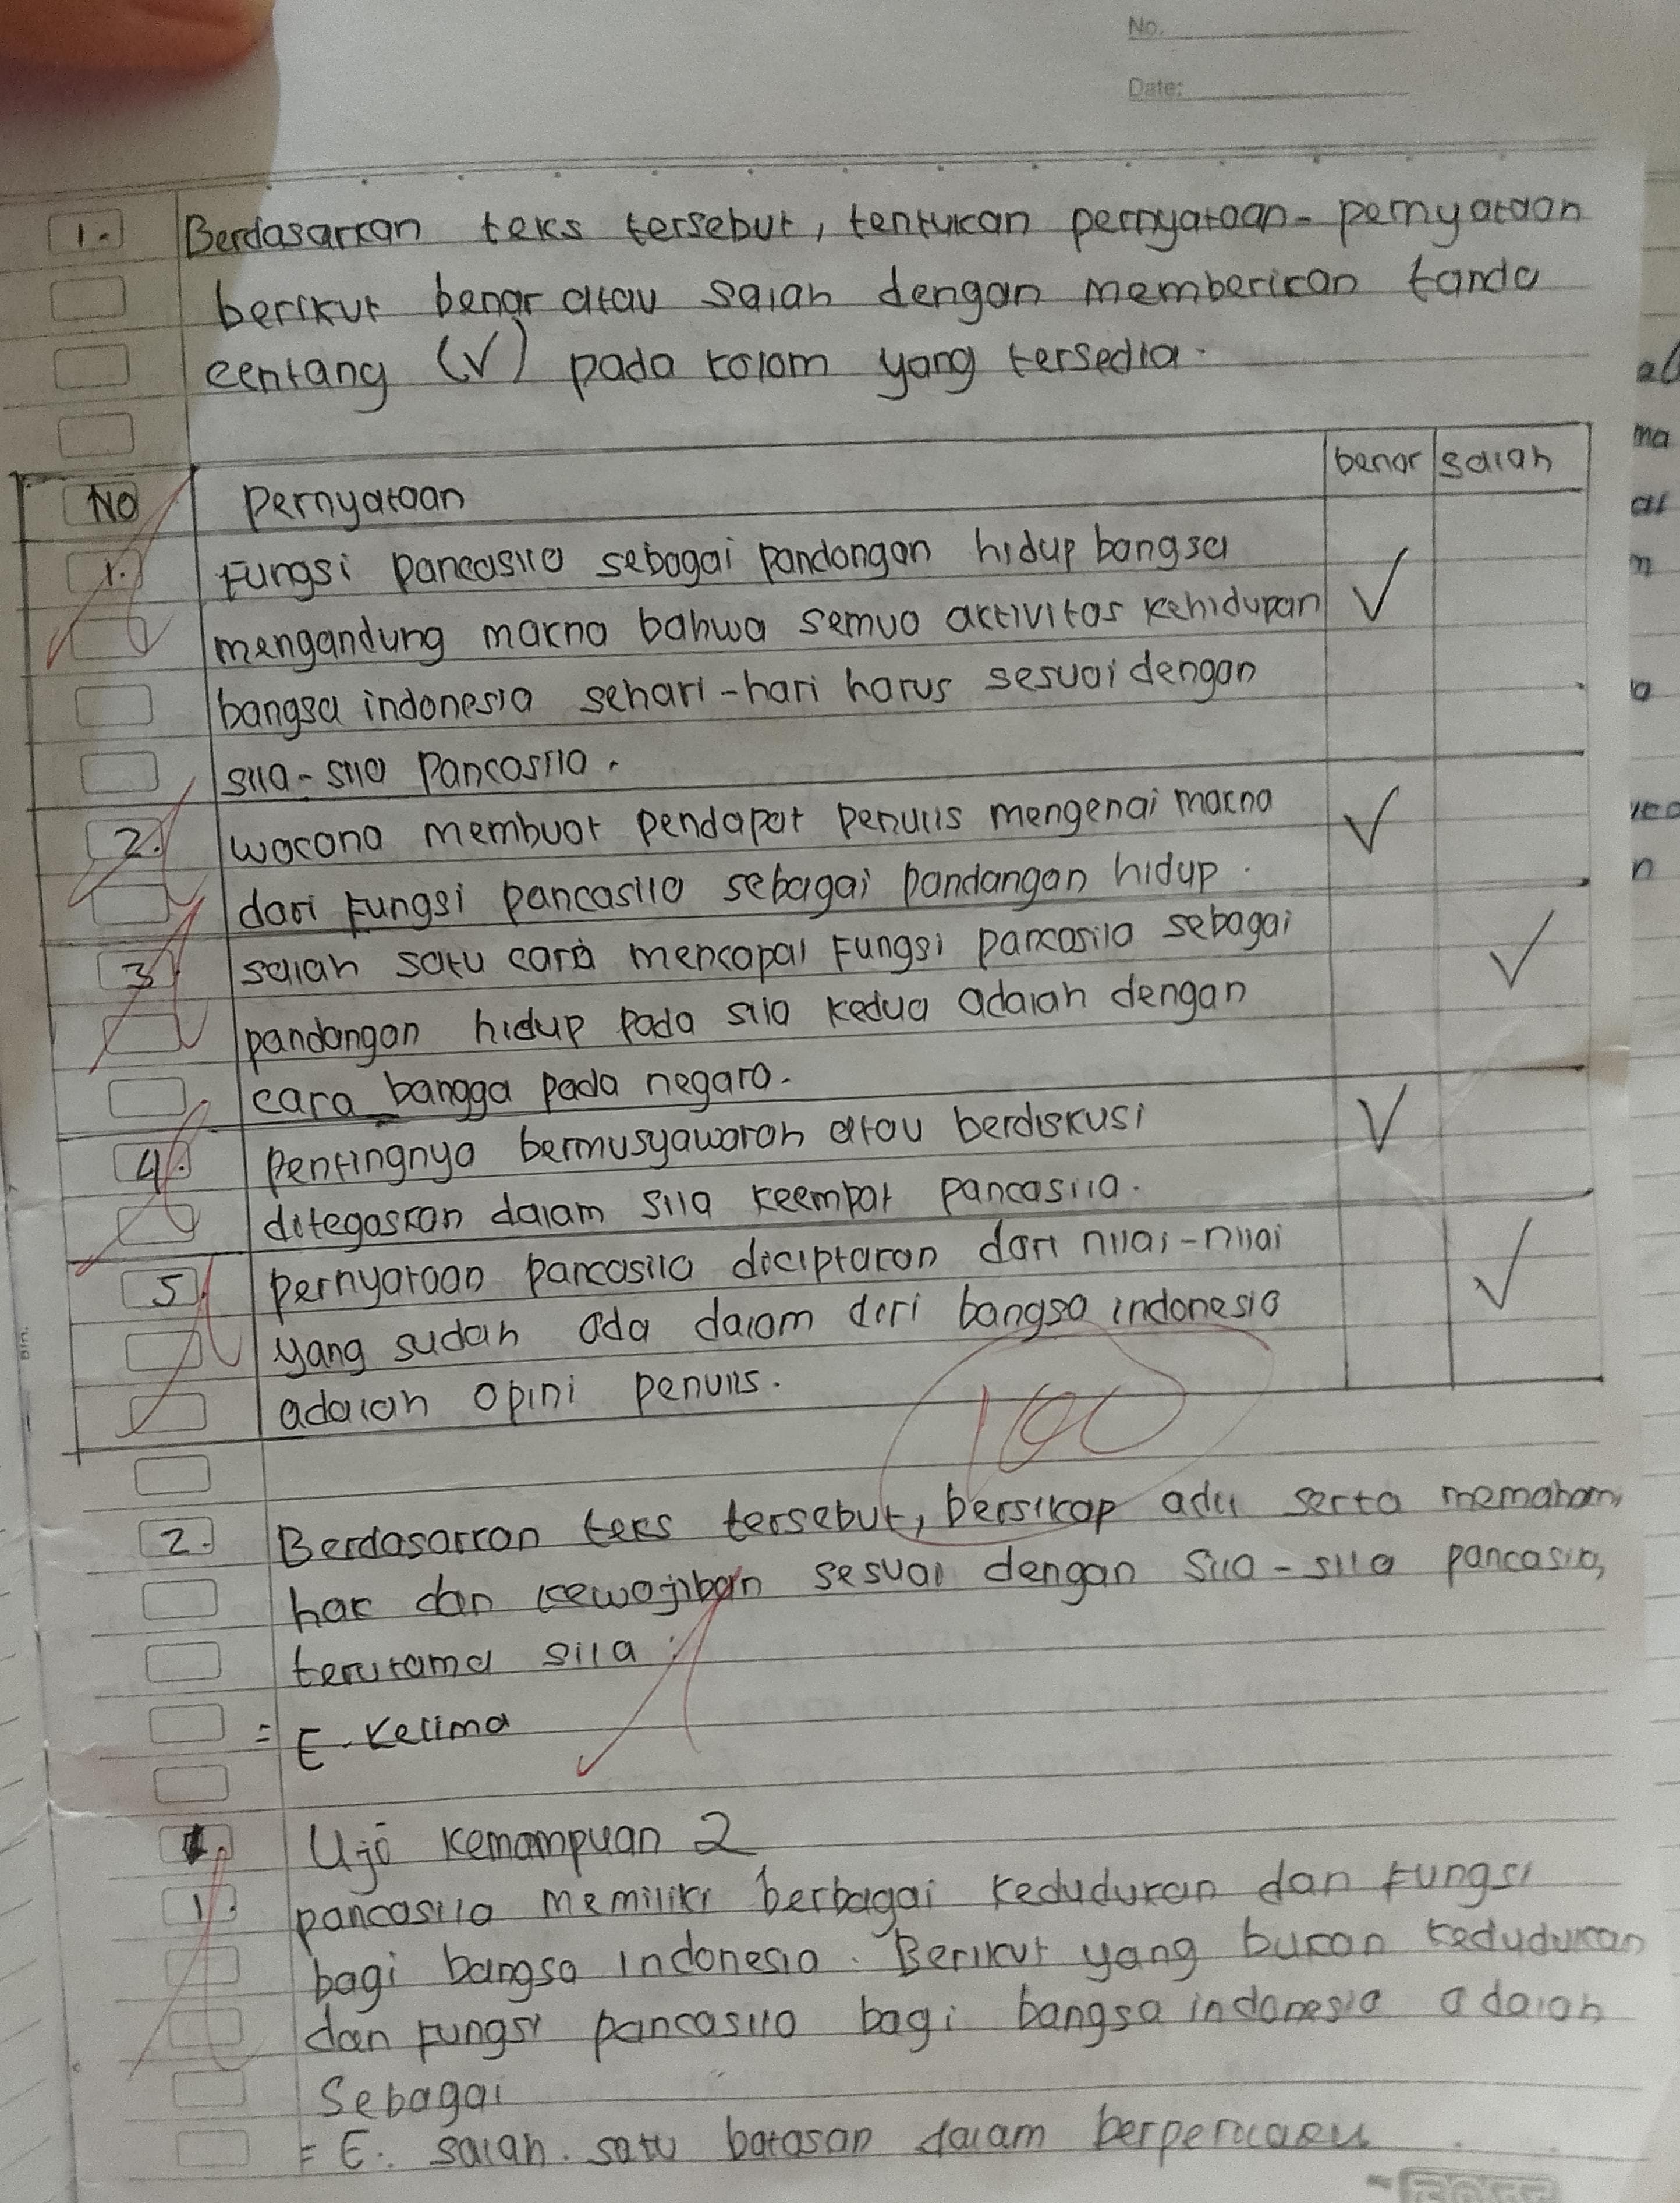 No.
Date:
1. Berdasarkan teks tersebut, tentukan pernyataan-pernyataan
berikut benar atau salah dengan memberikan tanda
centang (√) pada kolom yang tersedia.
No Pernyataan benar salah
1. Fungsi pancasila sebagai pandangan hidup bangsa
mengandung makna bahwa semua aktivitas kehidupan √
bangsa indonesia sehari-hari harus sesuai dengan
sila-sila Pancasila.
2. wacana membuat pendapat penulis mengenai makna √
dari fungsi pancasila sebagai pandangan hidup.
3. salah satu cara mencapai fungsi pancasila sebagai √
pandangan hidup pada sila kedua adalah dengan
cara bangga pada negara.
4. Pentingnya bermusyawarah atau berdiskusi √
ditegaskan dalam sila keempat pancasila.
5. pernyataan pancasila diciptakan dari nilai-nilai √
yang sudah ada dalam diri bangsa indonesia
adalah opini penulis.
100
2. Berdasarkan teks tersebut, bersikap adil serta memahami
hak dan kewajiban sesuai dengan sila-sila pancasila,
terutama sila:
= E. Kelima
Uji Kemampuan 2
1. pancasila memiliki berbagai kedudukan dan fungsi
bagi bangsa indonesia. Berikut yang bukan kedudukan
dan fungsi pancasila bagi bangsa indonesia adalah
Sebagai
= E. salah satu batasan dalam berperilaku
al
ma
at
n
n